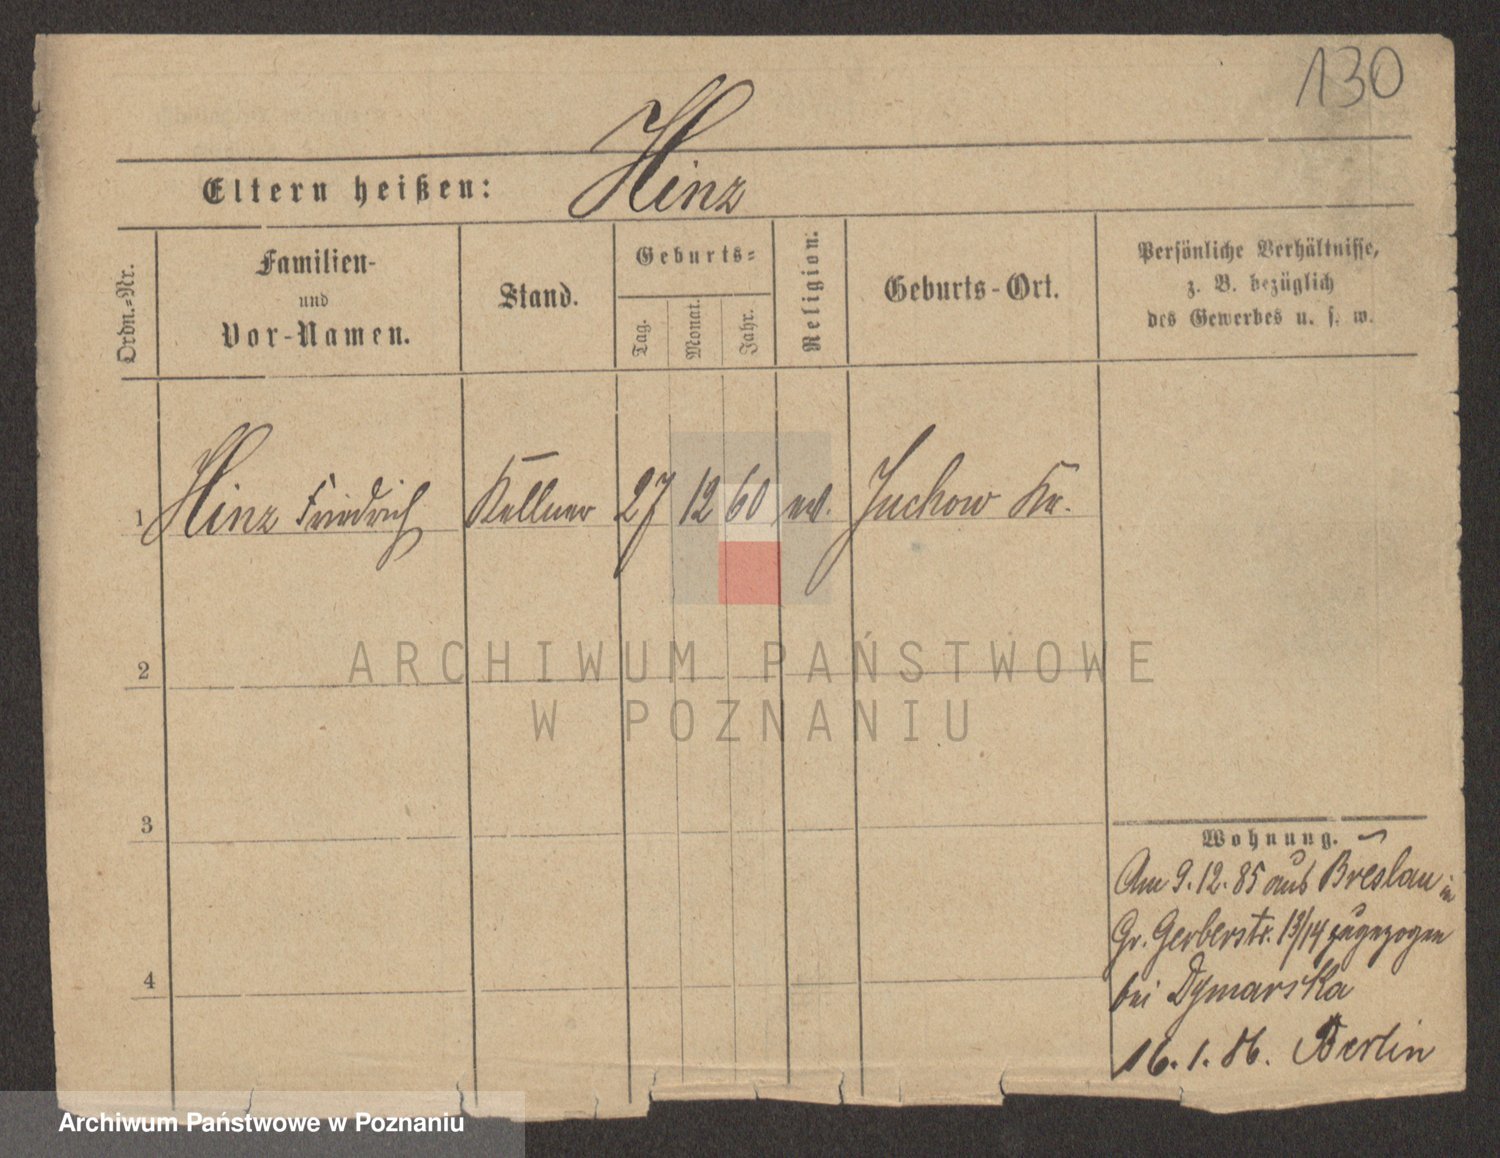 130
Eltern heißen: Hinz
Ordn.-Nr.
Familien-
und
Vor-Namen.
Stand.
Geburts-
Tag.
Monat.
Jahr.
Religion.
Geburts-Ort.
Persönliche Verhältnisse,
z. B. bezüglich
des Gewerbes u. s. w.
1 Hinz Friedrich Kellner 27 12 60 ev. Juchow Kr.
2
3
4
Wohnung.
Am 9.12.85 aus Breslau in
Gr. Gerberstr. 13/14 zugezogen
bei Dymarska
16.1.86. Berlin
ARCHIWUM PAŃSTWOWE
W POZNANIU
Archiwum Państwowe w Poznaniu